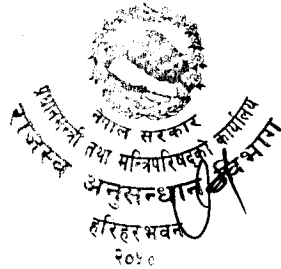 नेपाल सरकार
प्रधानमन्त्री तथा मन्त्रिपरिषद्को कार्यालय
राजस्व अनुसन्धान विभाग
हरिहरभवन